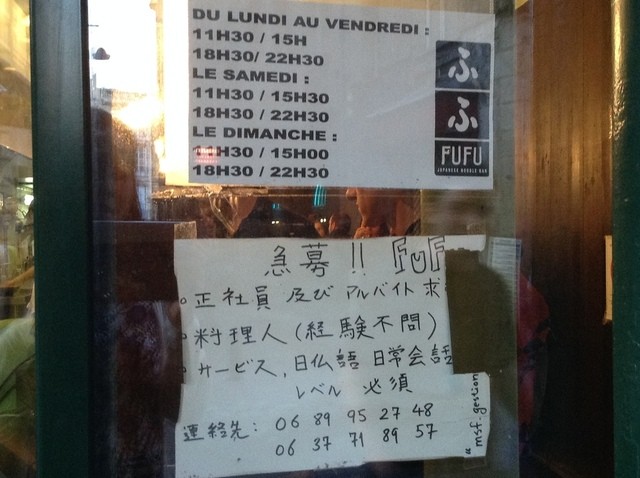 DU LUNDI AU VENDREDI :
11H30 / 15H
18H30/ 22H30
LE SAMEDI :
11H30 / 15H30
18H30 / 22H30
LE DIMANCHE :
11H30 / 15H00
18H30 / 22H30
ふ
ふ
FUFU
JAPANESE NOODLE BAR
急募!! FUF
・正社員 及び アルバイト 求
・料理人 (経験不問)
・サービス, 日仏語 日常会話
レベル 必須
連絡先: 06 89 95 27 48
06 37 71 89 57
"msf.gestion